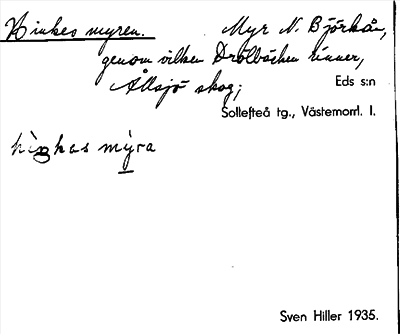 Hinkes myren. Myr N. Björkån,
genom vilken Drölbäcken rinner,
Ållsjö skog; Eds s:n
Sollefteå tg., Västernorrl. l.
hìŋkas mýra
Sven Hiller 1935.